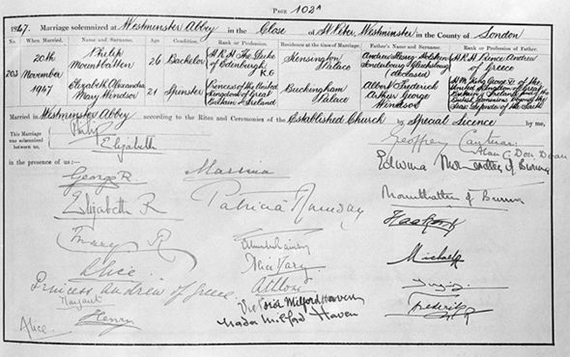 PAGE 102A
1947. Marriage solemnized at Westminster Abbey in the Close of St Peter, Westminster in the County of London
When Married. Name and Surname. Age Condition Rank or Profession. Residence at the time of Marriage. Father's Name and Surname. Rank or Profession of Father.
203 20th November 1947
Philip Mountbatten 26 Bachelor H.R.H. The Duke of Edinburgh K.G. Kensington Palace (deceased) H.R.H. Prince Andrew of Greece
Elizabeth Alexandra Mary Windsor 21 Spinster Princess of the United Kingdom of Great Britain & Ireland Buckingham Palace Albert Frederick Arthur George Windsor
Married in Westminster Abbey according to the Rites and Ceremonies of the Established Church by Special Licence by me,
This Marriage was solemnized between us,
Philip
Elizabeth
Geoffrey Cantuar:
Alan C. Don Dean
in the presence of us:
George R.
Elizabeth R
Mary R
Alice.
Princess Andrew of Greece
Margaret
Henry
Alice.
Marina
Patricia Ramsay
Alice Mary
Victoria Milford Haven
Nada Milford Haven
Edwina Mountbatten of Burma
Mountbatten of Burma
Haakon R
Michael R
Ingrid
Frederik R